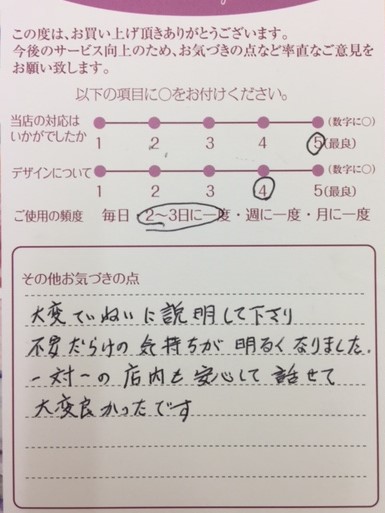 この度は、お買い上げ頂きありがとうございます。
今後のサービス向上のため、お気づきの点など率直なご意見を
お願い致します。
以下の項目に〇をお付けください。
当店の対応は
いかがでしたか
(数字に〇)
1 2 3 4 5(最良)
デザインについて
(数字に〇)
1 2 3 4 5(最良)
ご使用の頻度 毎日・2〜3日に一度・週に一度・月に一度
その他お気づきの点
大変ていねいに説明して下さり
不安だらけの気持ちが明るくなりました。
一対一の店内も安心して話せて
大変良かったです